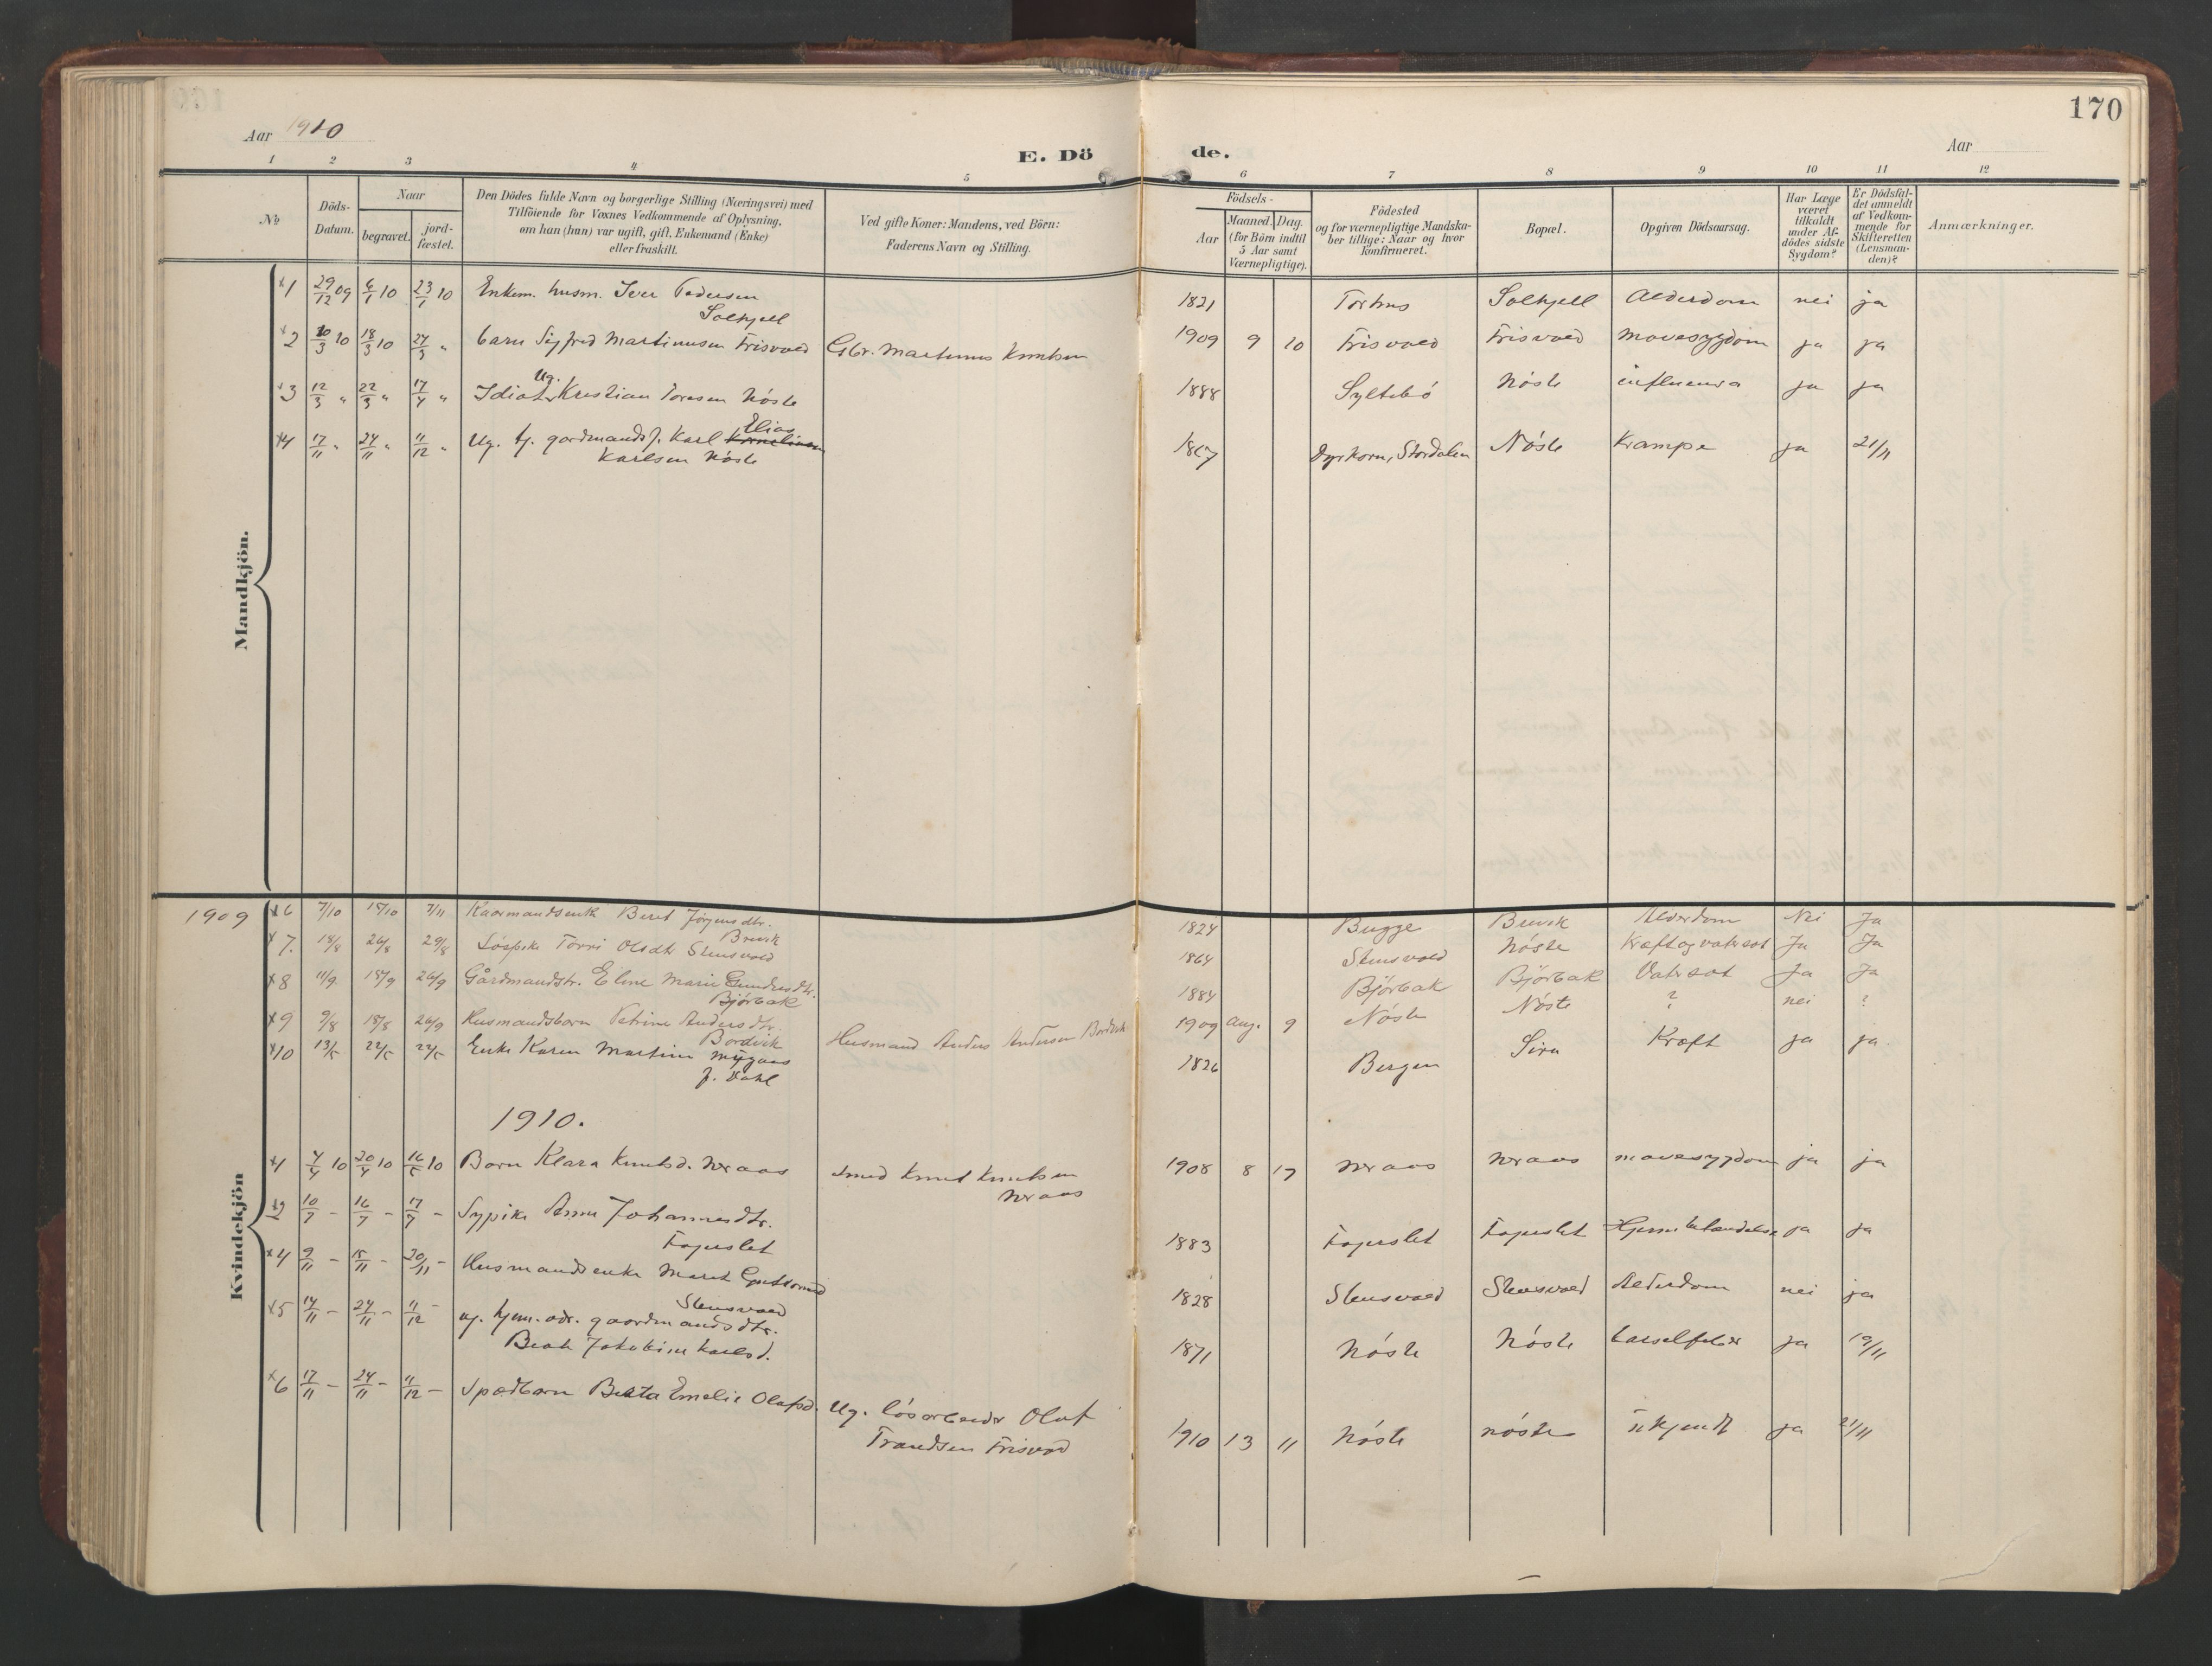 170
Aar 1910
E. Döde.
Aar
1 2 3 4 5 6 7 8 9 10 11 12
No
Döds-Datum.
Naar
begravet.
jord-fæstet.
Den Dödes fulde Navn og borgerlige Stilling (Næringsvei) med
Tilföiende for Voxnes Vedkommende af Oplysning,
om han (hun) var ugift, gift, Enkemand (Enke)
eller fraskilt.
Ved gifte Koner: Mandens, ved Börn:
Faderens Navn og Stilling.
Födsels-
Aar
Maaned. Dag.
(for Börn indtil
5 Aar samt
Værnepligtige).
Födested
og for værnepligtige Mandska-
ber tillige: Naar og hvor
konfirmeret.
Bopæl.
Opgiven Dödsaarsag.
Har Læge
været
tilkaldt
under Af-
dödes sidste
Sygdom?
Er Dödsfal-
det anmeldt
af Vedkom-
mende for
Skifteretten
(Lensman-
den)?
Anmærkninger.
Mandkjön.
x1 29/12 09 6/1 10 23/1 10 Enkem. husm. Iver Pedersen Solhjell 1821 Torhus Solhjell Alderdom nei ja
x2 10/3 10 18/3 10 27/3 " barn Sigfred Martinusen Frisvold Gbr. Martinus Knutsen 1909 9 20 Frisvold Frisvold Mavesygdom ja ja
x3 12/3 " 22/3 " 17/4 " Idiot Ug. Kristian Toresen Nöste 1888 Syltebö Nöste influensa ja ja
x4 17/11 " 24/11 " 11/12 " Ug. tj. gardmands s. Karl Elias
Karlsen Nöste 1867 Dyrkorn, Stordalen Nöste Krampe ja 21/11
1909
x6 7/10 15/10 7/11 Kaarmandsenke Beret Jörgensdtr. Brevik 1824 Bugge Brevik Alderdom Nei Ja
x7. 18/8 26/8 29/8 Löspike Torri Olsdtr Stensvold 1864 Stensvold Nöste Kræft og vatersot Ja Ja
x8 11/9 18/9 26/9 Gårdmandsdtr. Eline Marie Gundersdtr. Björbak 1884 Björbak Björbak Vatersot Ja Ja
x9 9/8 18/8 26/9 Husmandsbarn Petrine Andersdtr. Bordvik Husmand Anders Andersen Bordvik 1909 Aug. 9 Nöste Nöste ? nei ?
x10 13/5 22/5 22/5 Enke Karen Martine Mÿgaas
f. Dahl 1826 Bergen Sira Kræft ja ja
1910.
Kvindekjön
x1 4/4 10 20/4 10 16/5 10 Barn Klara Knutsd. Neraas smed Knut Knutsen Neraas 1908 8 17 Neraas Neraas mavesygdom ja ja
x2 10/7 - 16/7 - 17/7 - Sypike Anne Johannesdtr. Fagerslet 1883 Fagerslet Fagerslet Hjernebetændelse ja ja
x4 9/11 - 15/11 - 20/11 - Husmandsenke Marit
Stensvold 1828 Stensvold Stensvold Alderdom nei ja
x5 14/11 - 24/11 - 11/12 - ug. hjem. gaardmandsdtr.
Beate Jakobine Karlsd. 1871 Nöste Nöste barselfeber ja 19/11
x6 17/11 - 24/11 - 11/12 - Spædbarn Berta Emelie Olafsd. Ug. lösarbeider Olaf
Trondsen Frisvold 1910 13 11 Nöste nöste ukjendt ja 21/11